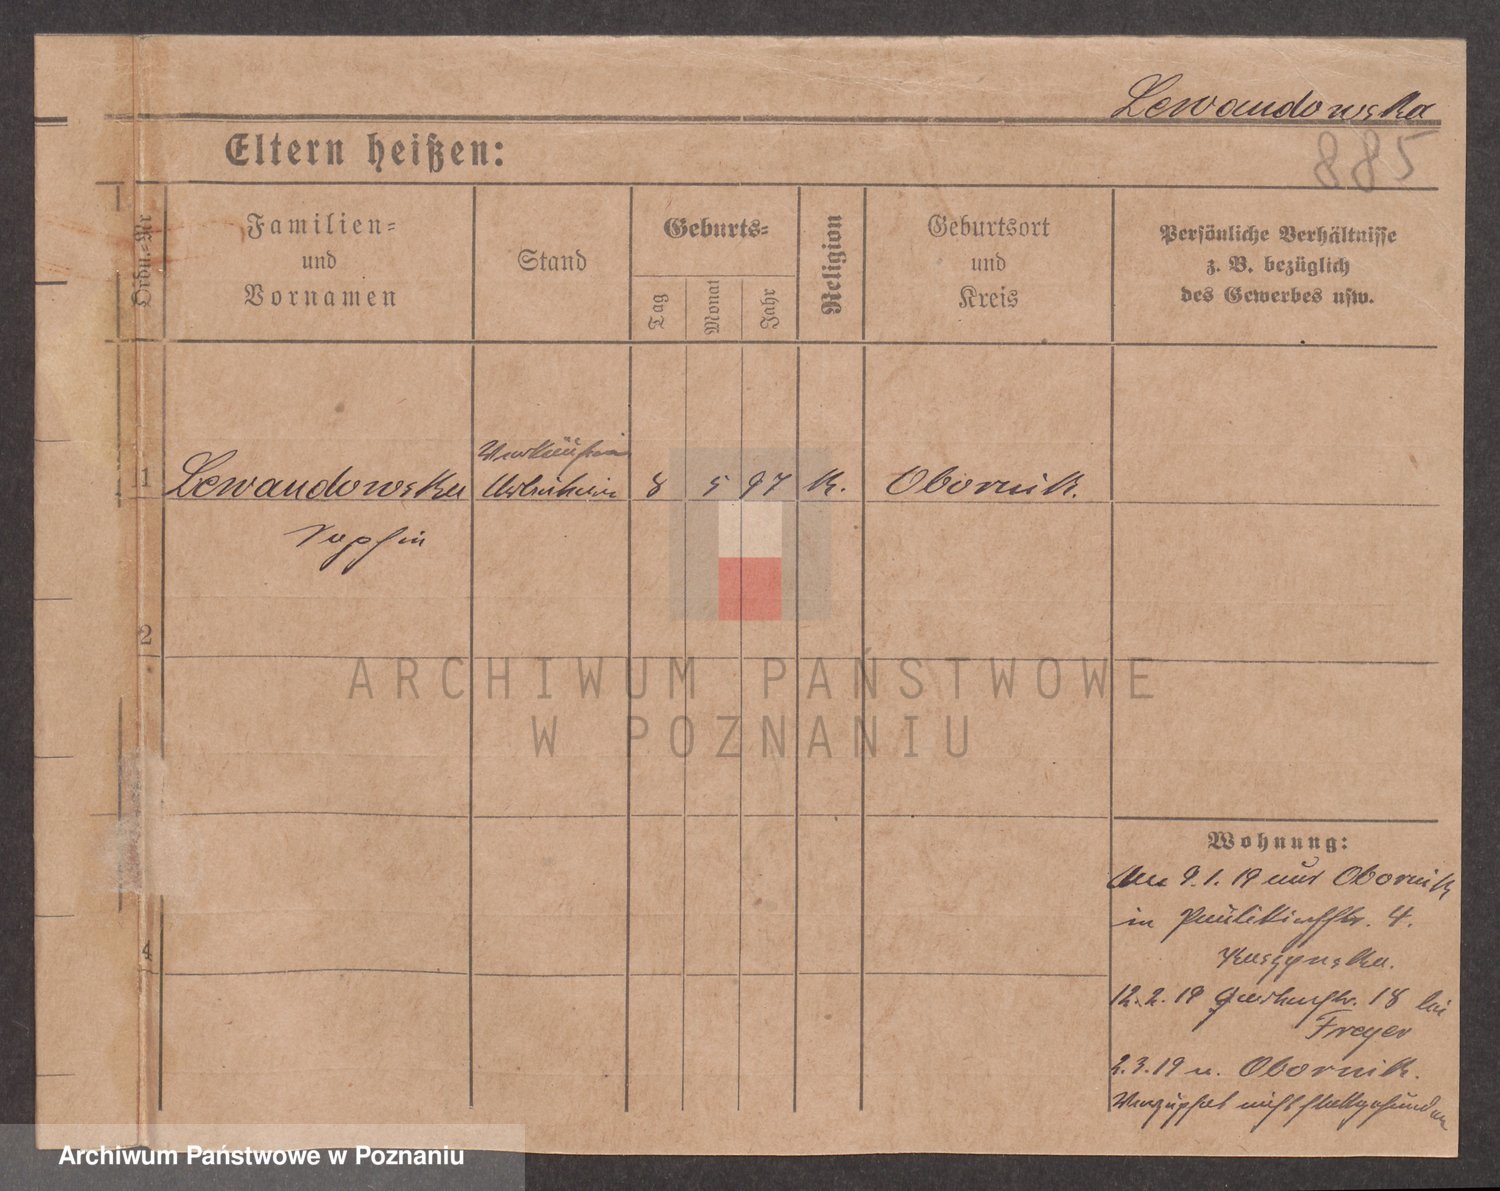 Lewandowska
885
Eltern heißen:
Ordn.-Nr
Familien-
und
Vornamen
Stand
Geburts-
Tag
Monat
Jahr
Religion
Geburtsort
und
Kreis
Persönliche Verhältnisse
z. B. bezüglich
des Gewerbes usw.
Verkäuferin
1 Lewandowska Arbeiterin 8 5 97 K. Obornik.
Sophie
2
4
ARCHIWUM PAŃSTWOWE
W POZNANIU
Wohnung:
Am 9.1.19 aus Obornik
in Paulikirchstr. 4.
12.2.19 Gartenstr. 18 bei
Freyer
2.3.19 n. Obornik.
nicht stattgefunden
Archiwum Państwowe w Poznaniu